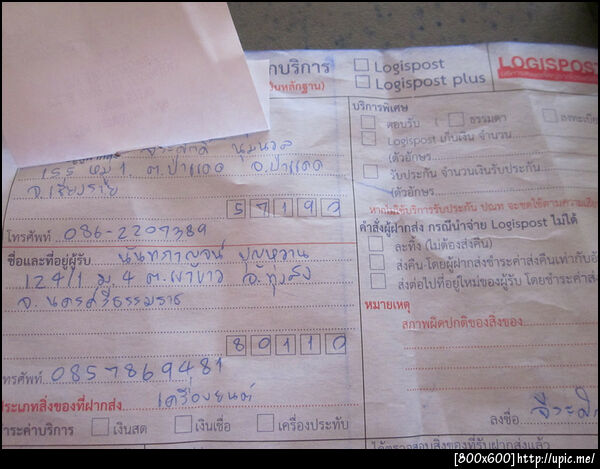 กบริการ
Logispost
Logispost plus
LOGISPOST
บริการพิเศษ
ตอบรับ ( ธรรมดา ลงทะเบีย
Logispost เก็บเงิน จำนวน
(ตัวอักษร
รับประกัน จำนวนเงินรับประกัน
(ตัวอักษร
155 หมู่ 1 ต.ป่าแดด อ.ป่าแดด
จ.เชียงราย
57190
โทรศัพท์ 086-2207389
คำสั่งผู้ฝากส่ง กรณีนำจ่าย Logispost ไม่ได้
ละทิ้ง (ไม่ต้องส่งคืน)
ส่งคืน โดยผู้ฝากส่งชำระค่าส่งคืนเท่ากับอั
ส่งต่อไปที่อยู่ใหม่ของผู้รับ โดยชำระค่าส่
ชื่อและที่อยู่ผู้รับ นันทกาญจน์ บุญหวาน
124/1 ม.4 ต.เขาขาว อ.ทุ่งสง
จ.นครศรีธรรมราช
80110
ทรศัพท์ 0857869481
หมายเหตุ
สภาพผิดปกติของสิ่งของ
ประเภทสิ่งของที่ฝากส่ง เครื่องยนต์
ชำระค่าบริการ เงินสด เงินเชื่อ เครื่องประทับ
ลงชื่อ
ได้ตรวจสอบสิ่งของที่รับฝากส่งแล้ว
[800x600]http://upic.me/